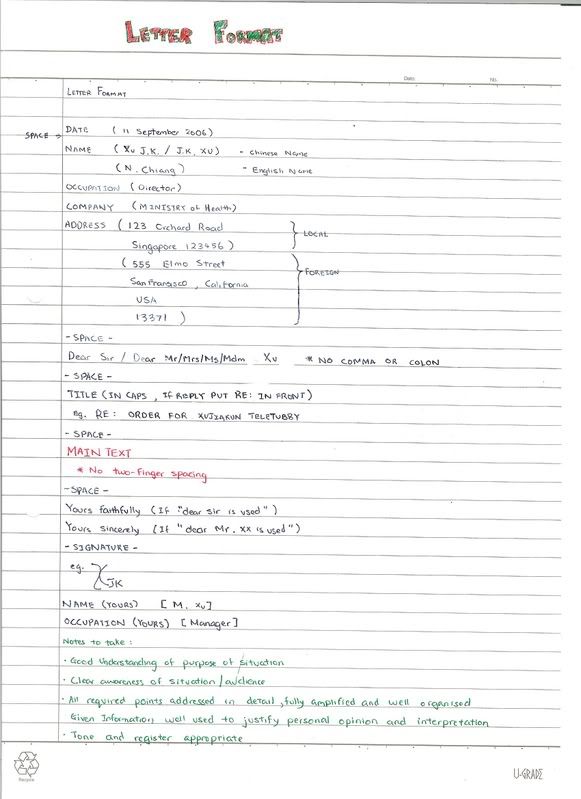 LETTER FORMAT
Date: No.
LETTER FORMAT
SPACE → DATE (11 September 2006)
NAME (Xu J.K. / J.K. XU) - Chinese Name
(N. Chiang) - English Name
OCCUPATION (Director)
COMPANY (MINISTRY of Health)
ADDRESS ( 123 Orchard Road
Singapore 123456 ) } LOCAL
( 555 Elmo Street
San Francisco, California } FOREIGN
USA
13371 )
- SPACE -
Dear Sir / Dear Mr/Mrs/Ms/Mdm Xu * NO COMMA OR COLON
- SPACE -
TITLE (IN CAPS, IF REPLY PUT RE: IN FRONT)
eg. RE: ORDER FOR XUJIAKUN TELETUBBY
- SPACE -
MAIN TEXT
* No two-finger spacing
- SPACE -
Yours faithfully (If "dear sir is used")
Yours sincerely (If "dear Mr. XX is used")
- SIGNATURE -
eg. XJK
NAME (YOURS) [M. Xu]
OCCUPATION (YOURS) [Manager]
Notes to take:
· Good Understanding of purpose of situation
· Clear awareness of situation/audience
· All required points addressed in detail, fully amplified and well organised
Given Information well used to justify personal opinion and interpretation
· Tone and register appropriate
Recycle U-GRADE